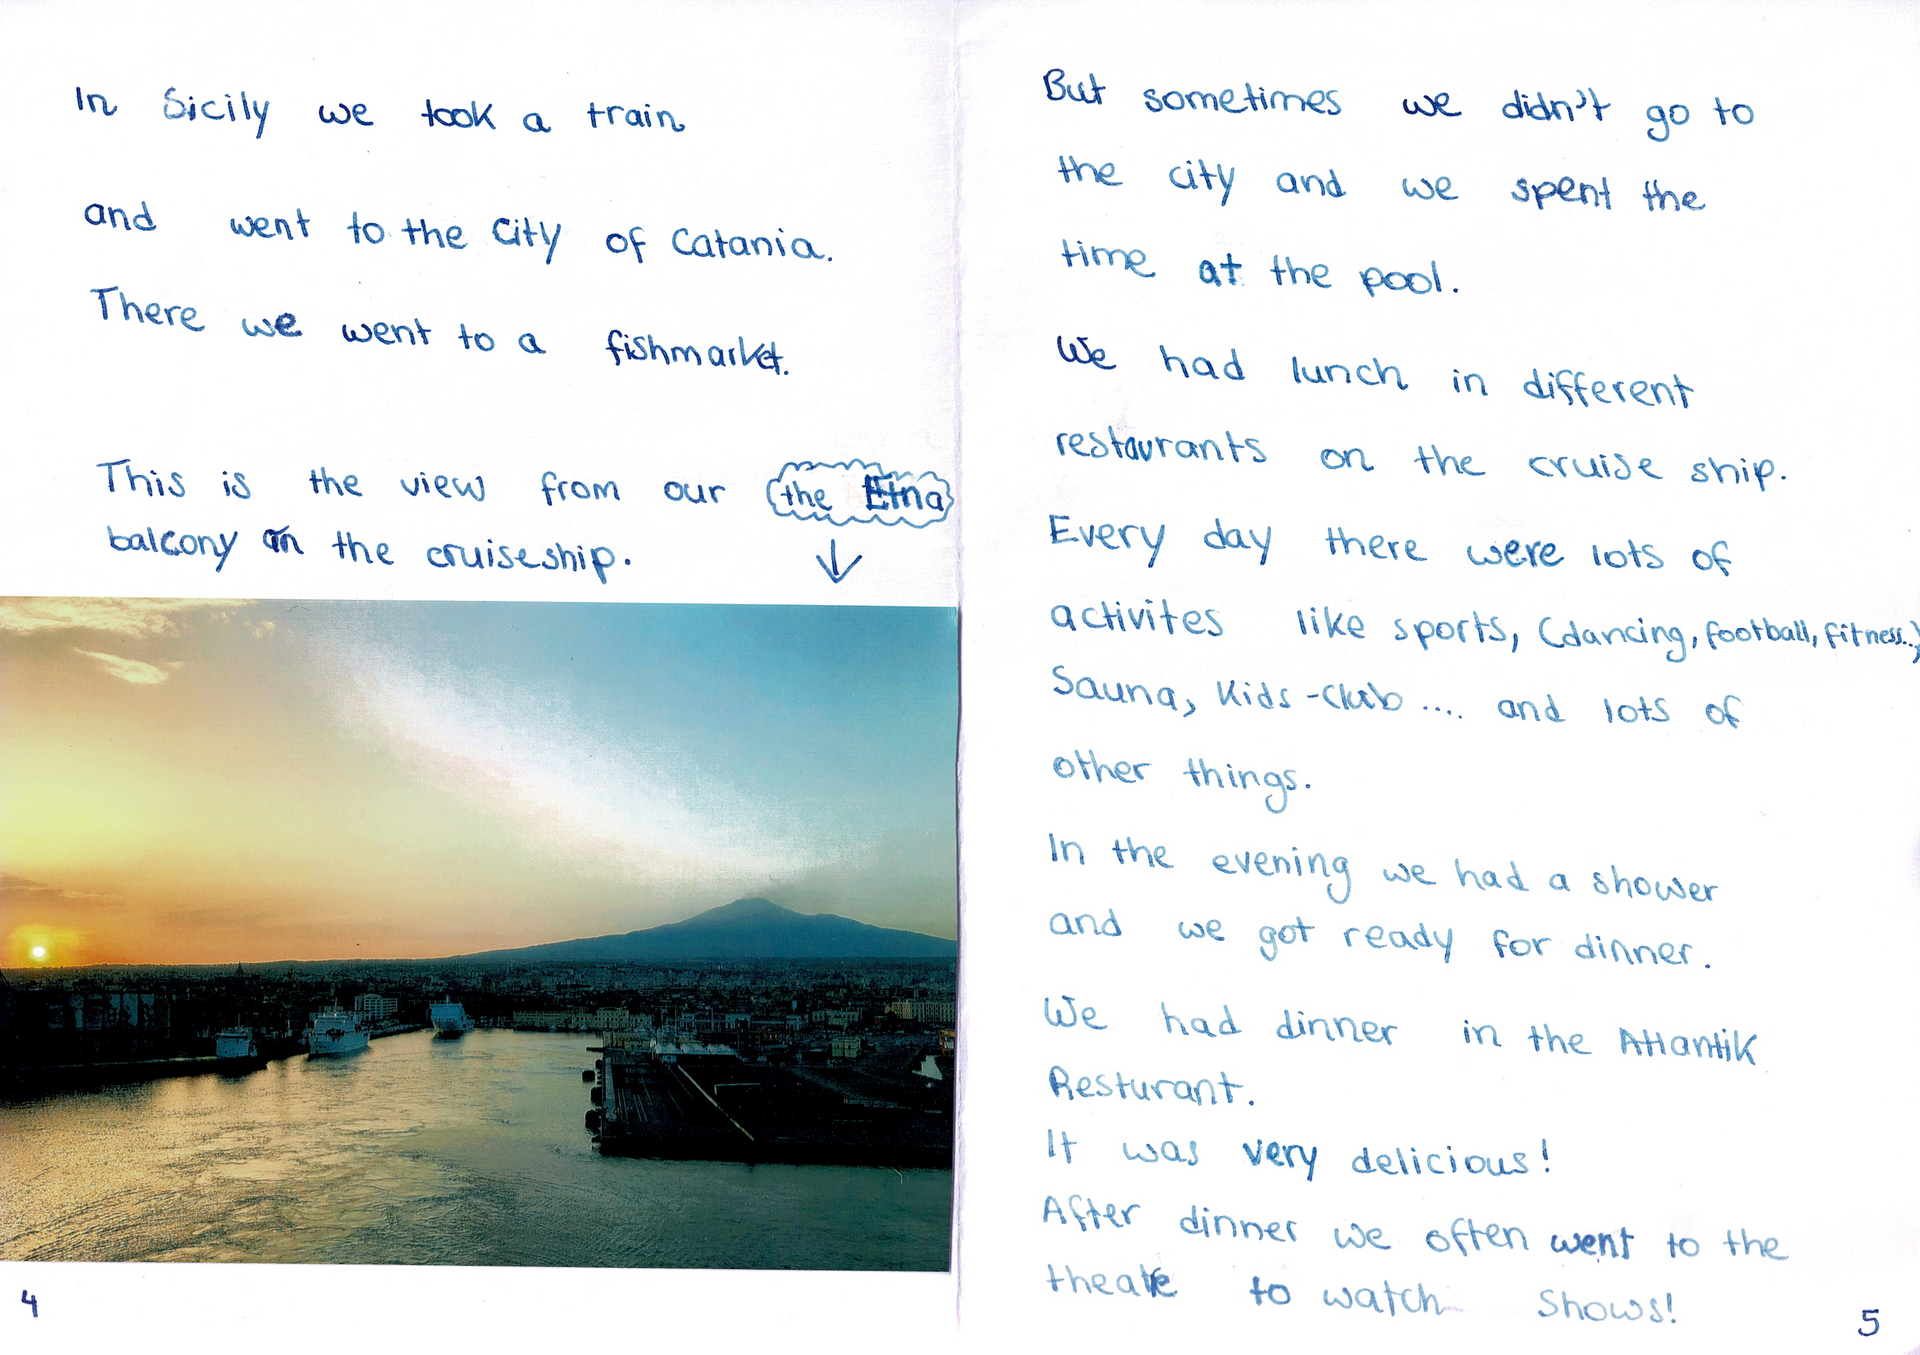 In Sicily we took a train
and went to the City of Catania.
There we went to a fishmarket.
This is the view from our
balcony on the cruiseship.
the Etna
4
But sometimes we didn't go to
the city and we spent the
time at the pool.
We had lunch in different
restaurants on the cruise ship.
Every day there were lots of
activites like sports, (dancing, football, fitness..)
Sauna, Kids-Club .... and lots of
other things.
In the evening we had a shower
and we got ready for dinner.
We had dinner in the Atlantik
Resturant.
It was very delicious!
After dinner we often went to the
theatre to watch Shows!
5